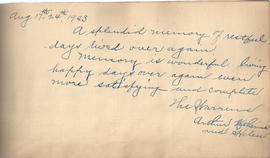 Aug 17th - 24th 1923
A splendid memory of restful
days lived over again
Memory is wonderful living
happy days over again even
more satisfying and complete
The
Arthur
and Helen